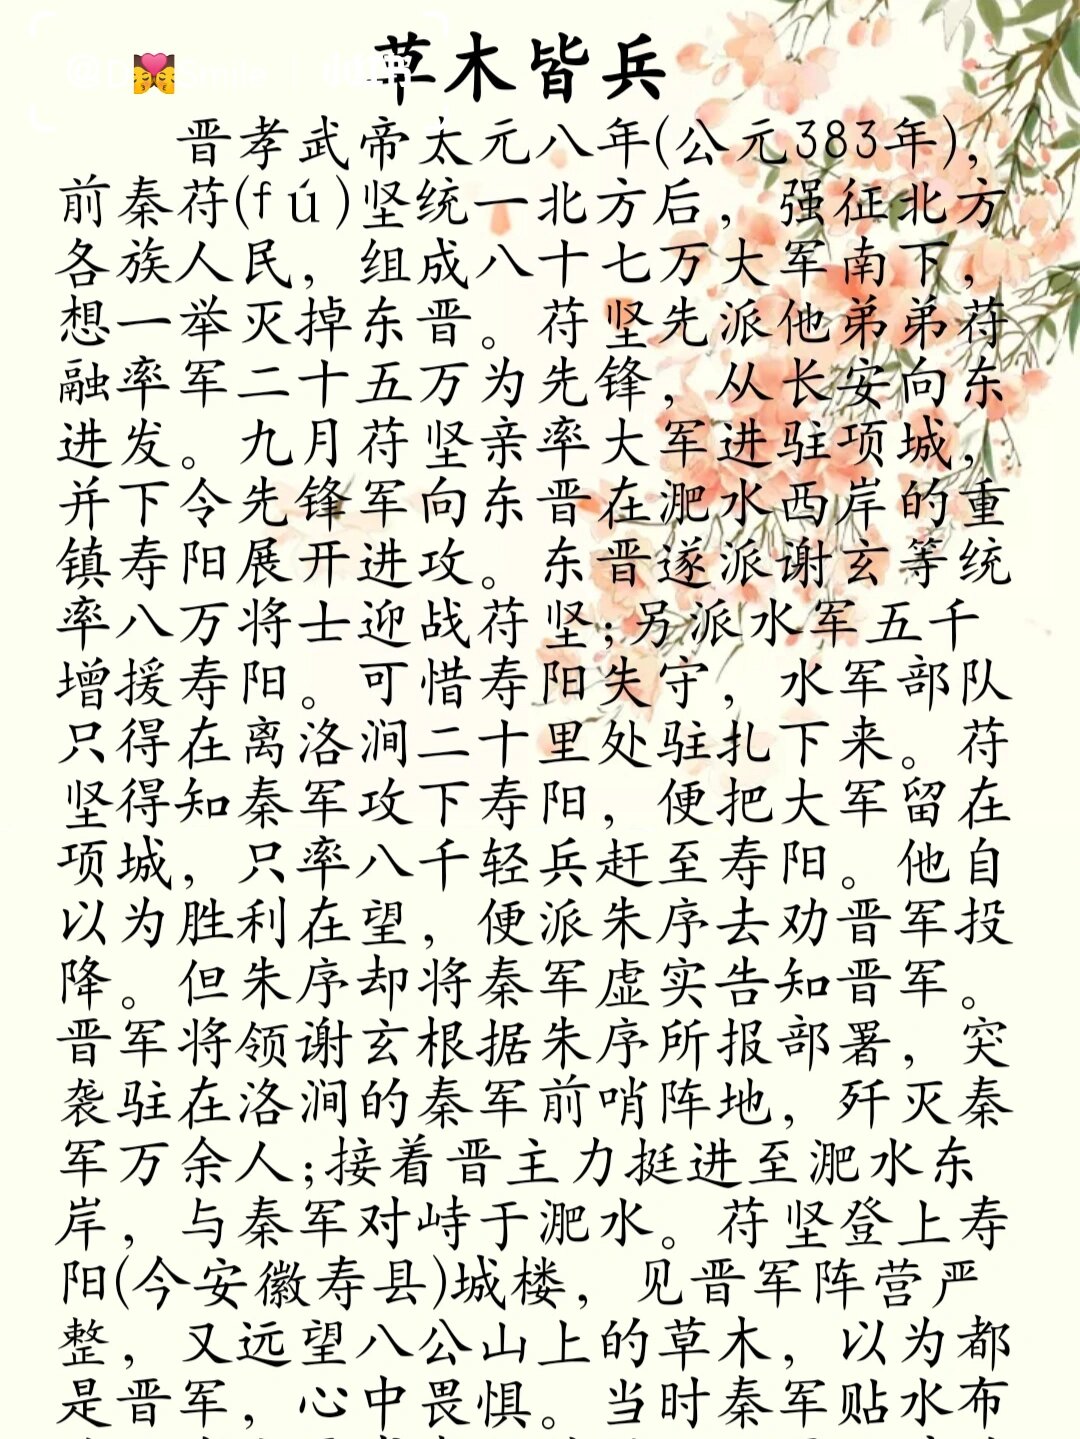 草木皆兵
晋孝武帝太元八年(公元383年)，
前秦苻(fú)坚统一北方后，强征北方
各族人民，组成八十七万大军南下，
想一举灭掉东晋。苻坚先派他弟弟苻
融率军二十五万为先锋，从长安向东
进发。九月苻坚亲率大军进驻项城，
并下令先锋军向东晋在淝水西岸的重
镇寿阳展开进攻。东晋遂派谢玄等统
率八万将士迎战苻坚;另派水军五千
增援寿阳。可惜寿阳失守，水军部队
只得在离洛涧二十里处驻扎下来。苻
坚得知秦军攻下寿阳，便把大军留在
项城，只率八千轻兵赶至寿阳。他自
以为胜利在望，便派朱序去劝晋军投
降。但朱序却将秦军虚实告知晋军。
晋军将领谢玄根据朱序所报部署，突
袭驻在洛涧的秦军前哨阵地，歼灭秦
军万余人;接着晋主力挺进至淝水东
岸，与秦军对峙于淝水。苻坚登上寿
阳(今安徽寿县)城楼，见晋军阵营严
整，又远望八公山上的草木，以为都
是晋军，心中畏惧。当时秦军贴水布